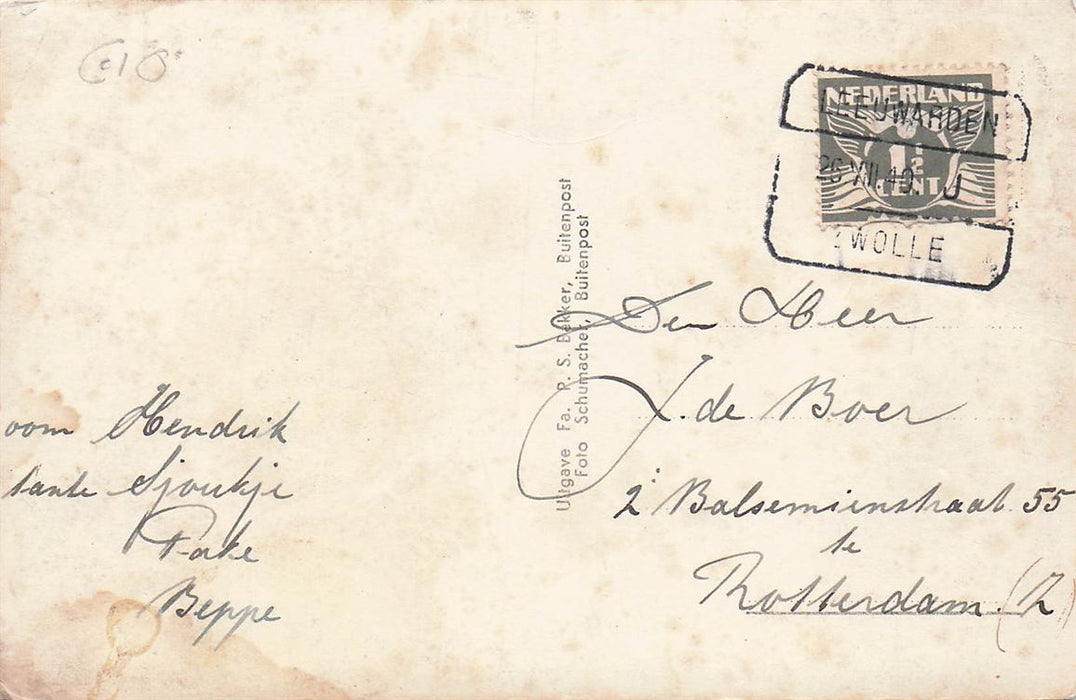 NEDERLAND
1½
CENT
LEEUWARDEN
26 XII.40. J
ZWOLLE
Uitgave Fa. R. S. Bekker, Buitenpost
Foto Schumacher, Buitenpost
Den Heer
J. de Boer
2e Balsemienstraat 55
te
Rotterdam. (Z
oom Hendrik
tante Sjoukje
Pake
Beppe